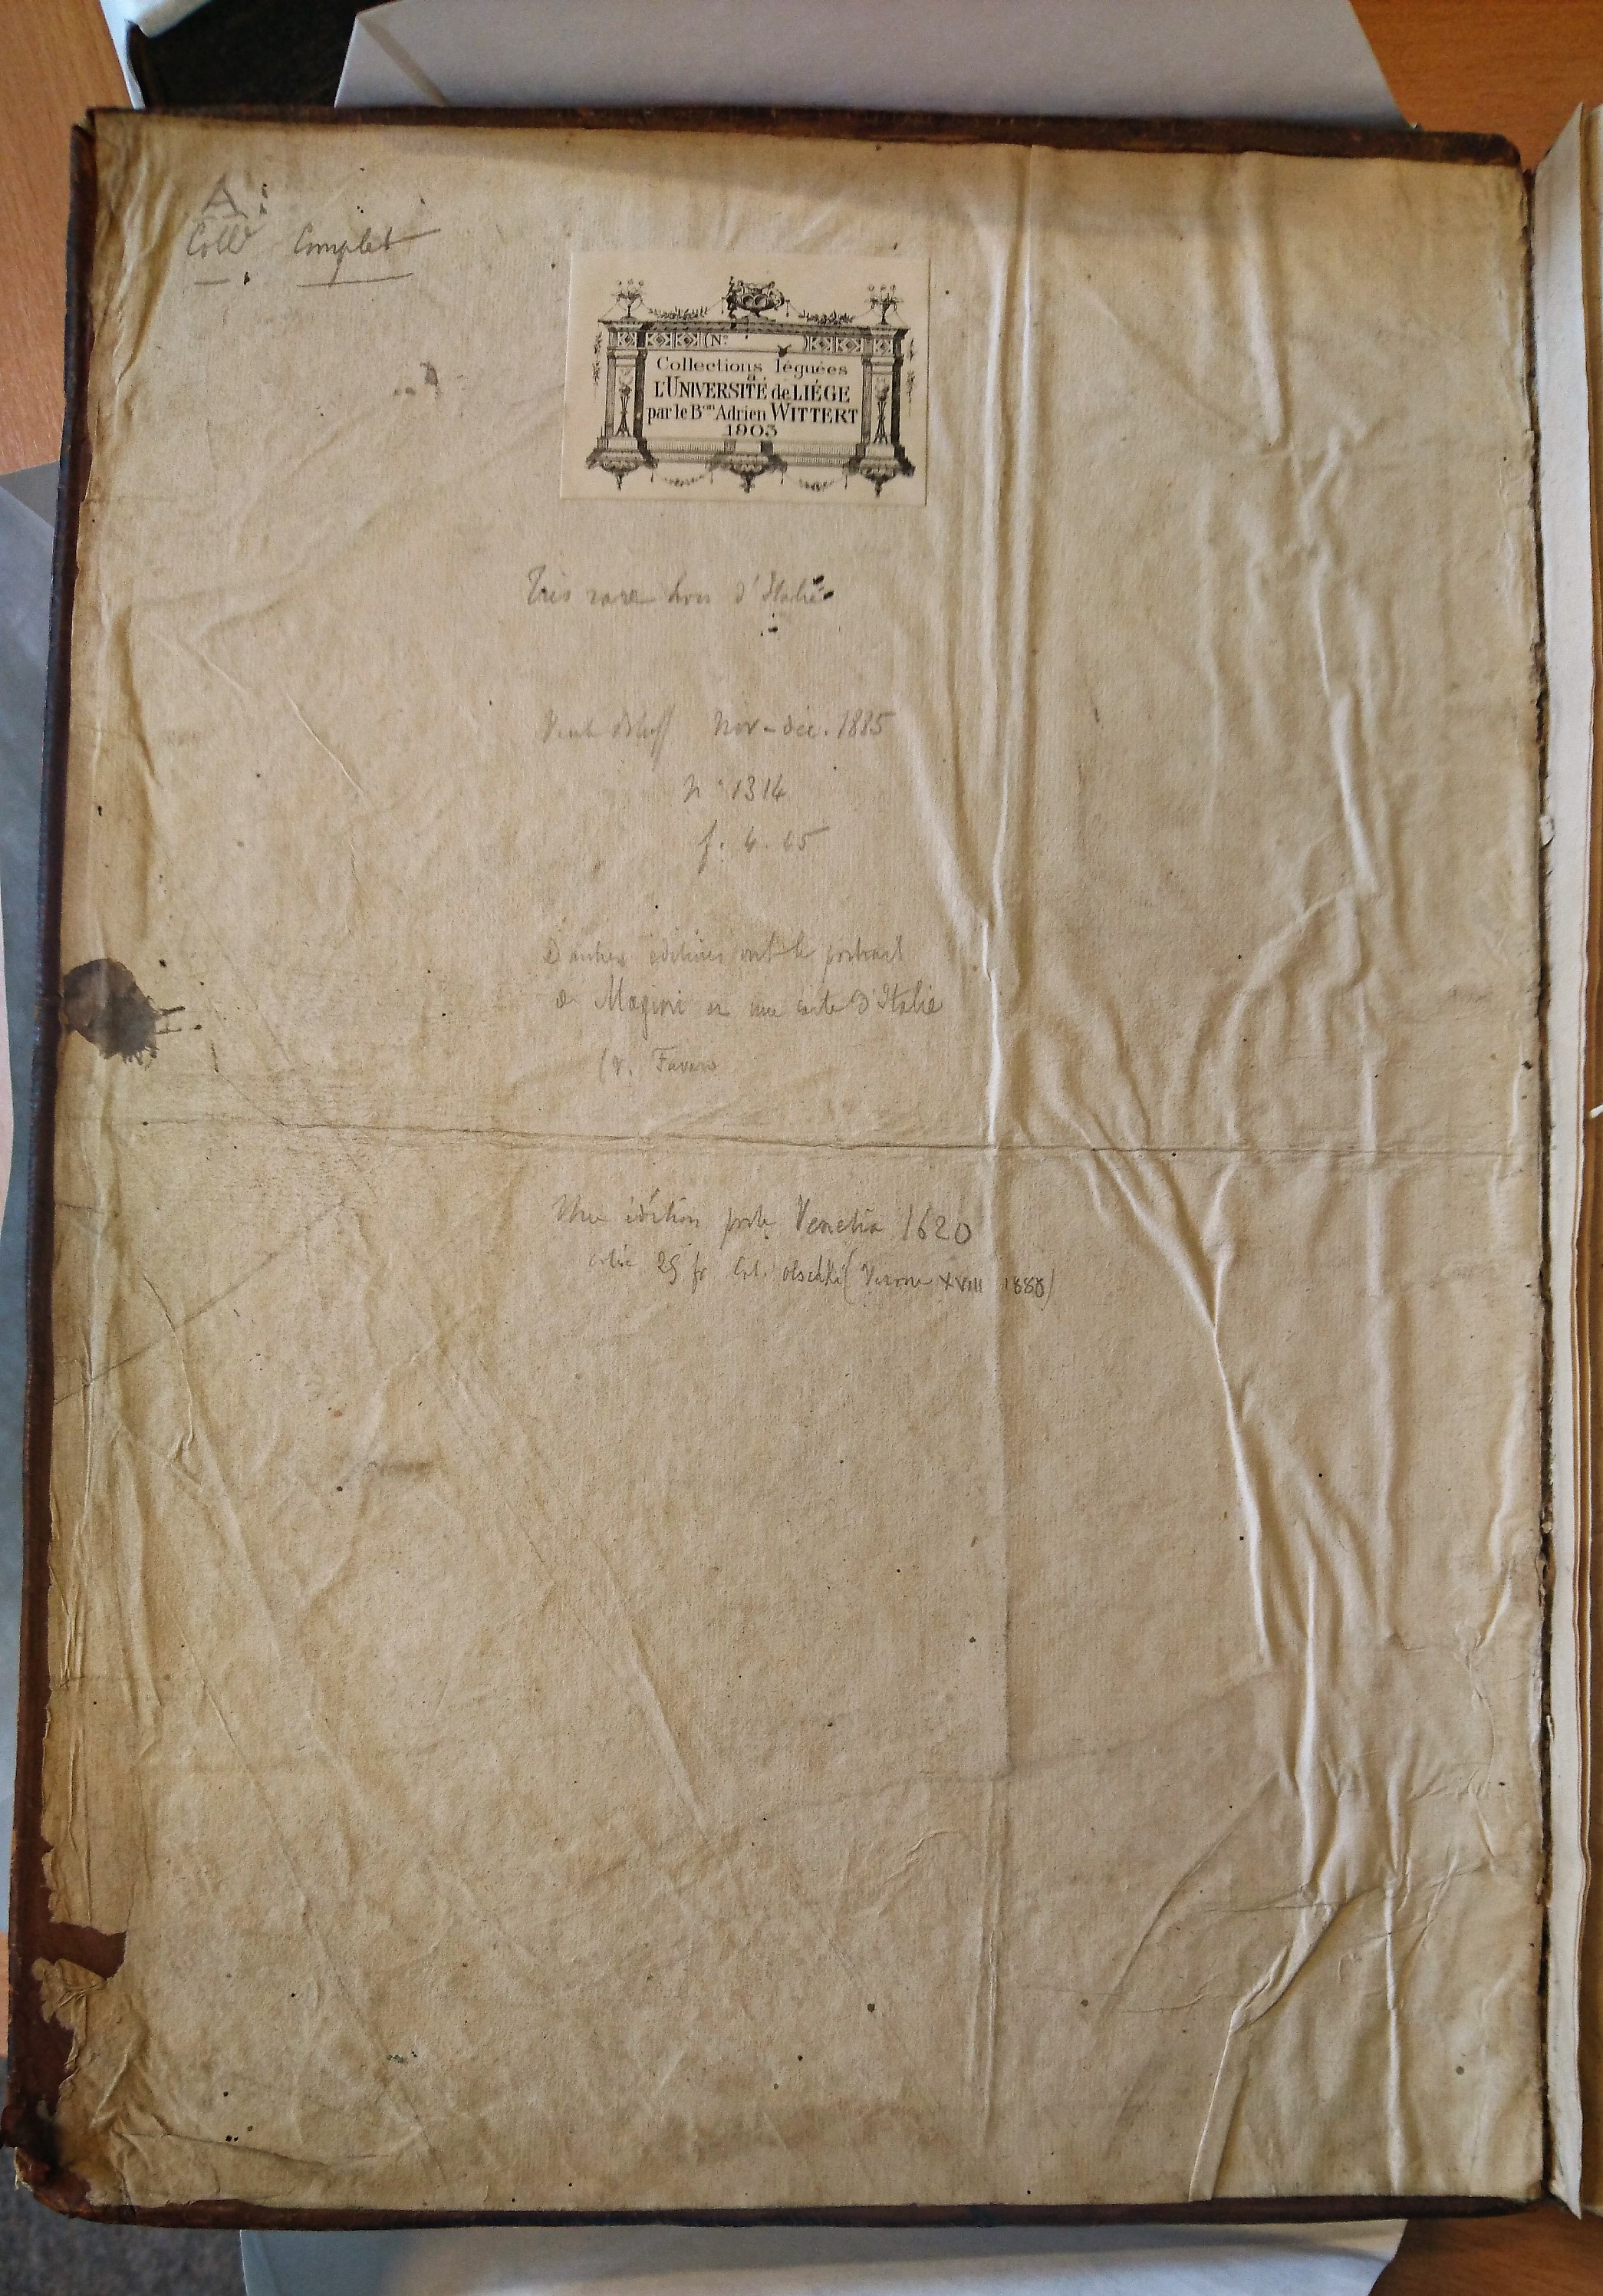 A:
Coll. Complet
(N°)
Collections léguées
à
L'UNIVERSITÉ de LIÉGE
par le Bon Adrien WITTERT
1903
Très rare hors d'Italie
Nov-déc. 1885
n° 1314
f. 4.
D'autres éditions ont le portrait
de Magini et une carte d'Italie
(v. Favaro
Une édition porte Venetia 1620
cotée 25 fr Cat. Olschki (Verone XVIII 1888)